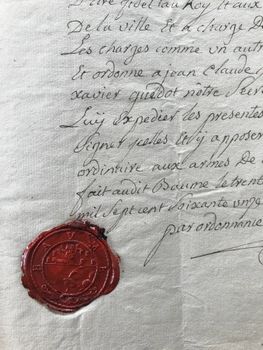 fidel au Roy et aux
De la ville Et a charge De
Les charges comme un autre
Et ordonne a jean Claude
xavier quedot notre
Luy expedier les presentes
Signer jcelles Et y apposer
ordintire aux armes de
fait audit Baume le trent
mil sept cent soixante unze
par ordonnance